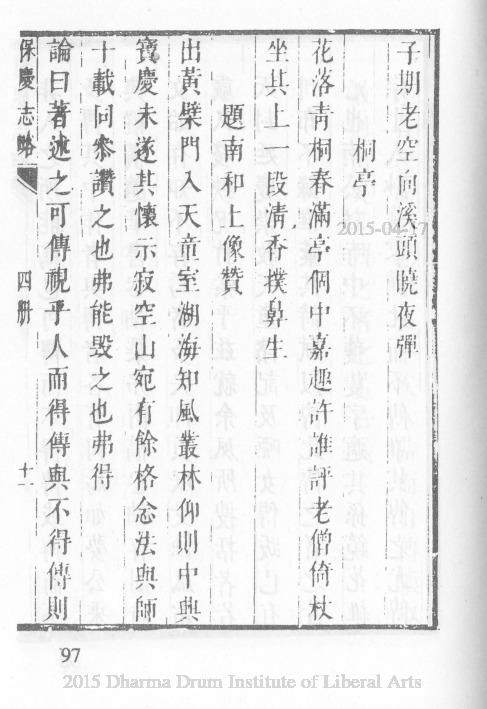 子期老空向溪頭曉夜彈
桐亭
花落青桐春滿亭個中嘉趣許誰評老僧倚杖
坐其上一段清香撲鼻生
題南和上像贊
出黃檗門入天童室湖海知風叢林仰則中興
寶慶未遂其懷示寂空山宛有餘格念法與師
十載同參讚之也弗能毀之也弗得
論曰著述之可傳視乎人而得傳與不得傳則
保慶志略 四册 十一
97
2015-04-17
2015 Dharma Drum Institute of Liberal Arts